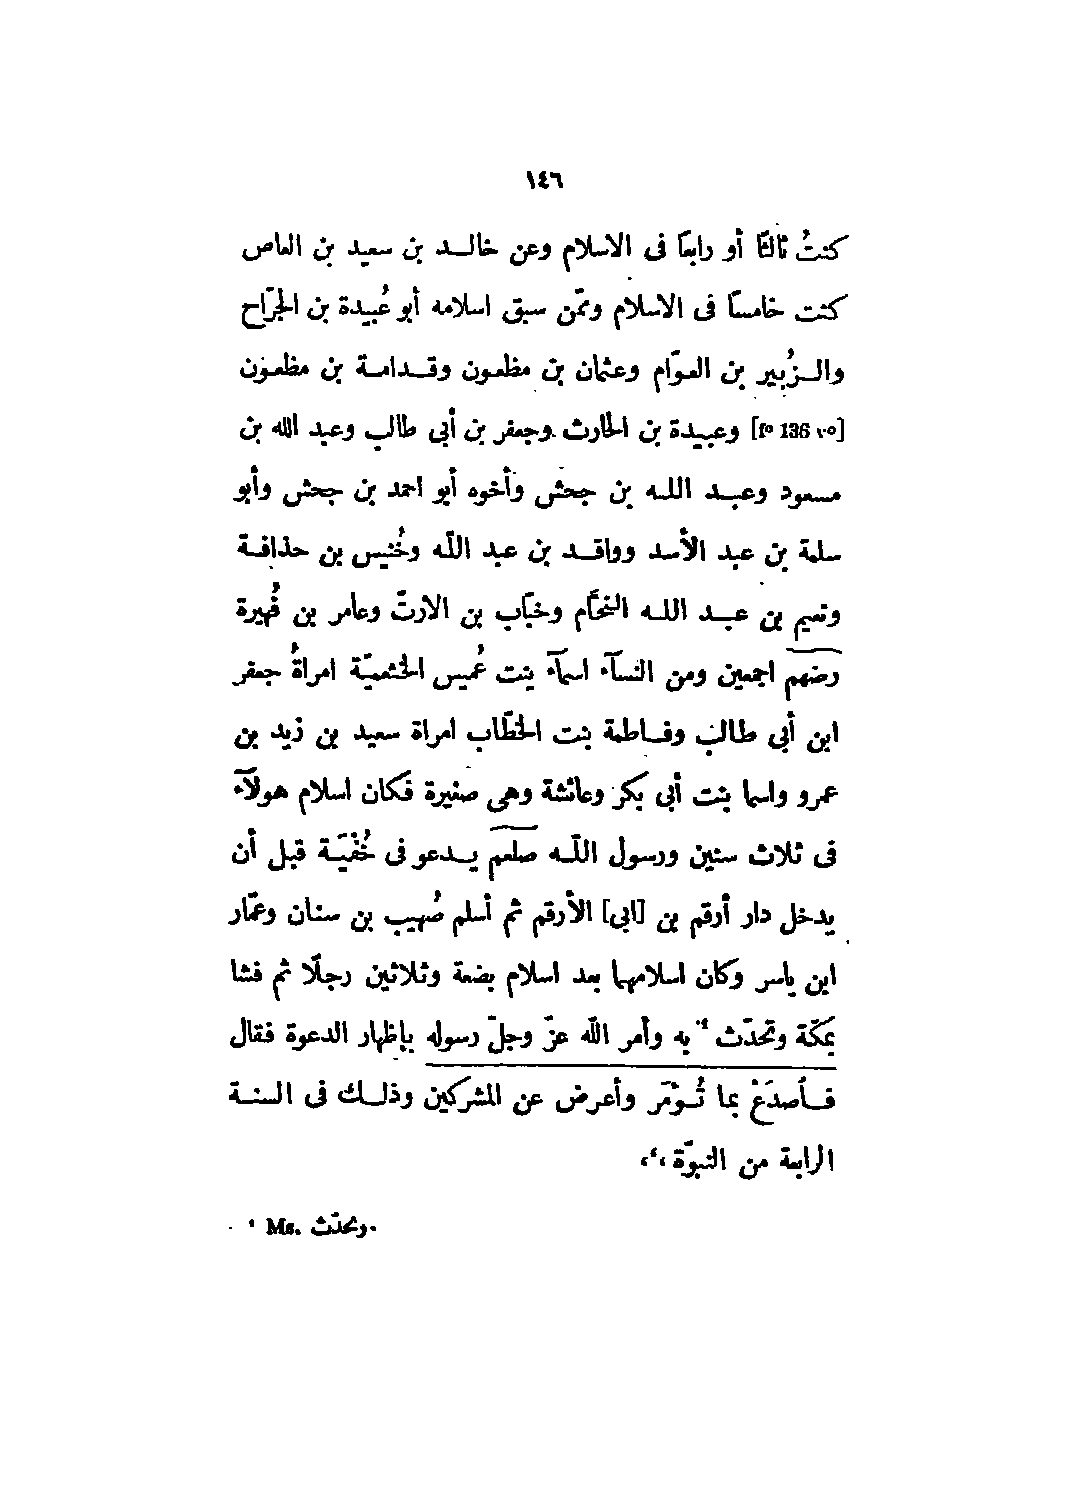 ١٤٦
كنتُ ثالثًا أو رابعًا فى الاسلام وعن خالـد بن سعيد بن العاص
كنت خامسًا فى الاسلام وممّن سبق اسلامه أبو عُبيدة بن الجرّاح
والـزُبير بن العوّام وعثمان بن مظعون وقـدامـة بن مظعون
[f° 136 v°] وعبيدة بن الحارث وجعفر بن أبى طالب وعبد الله بن
مسعود وعبـد اللـه بن جحش وأخوه أبو احمد بن جحش وأبو
سلمة بن عبد الأسد وواقـد بن عبد اللّه وخُنيس بن حذافـة
ونعيم بن عبـد اللـه النحّام وخبّاب بن الارتّ وعامر بن فُهيرة
رضهم اجمعين ومن النسآء اسمآء بنت عُميس الخثعميّة امراةُ جعفر
ابن أبى طالب وفـاطمة بنت الخطّاب امراة سعيد بن زيد بن
عمرو واسما بنت أبى بكر وعائشة وهى صغيرة فكان اسلام هولآء
فى ثلاث سنين ورسول اللّـه صلعم يـدعو فى خُفْيَـة قبل أن
يدخل دار أرقم بن [ابى] الأرقم ثم أسلم صُهيب بن سنان وعمّار
ابن ياسر وكان اسلامهما بعد اسلام بضعة وثلاثين رجلًا ثم فشا
بمكّة وتحدّث ¹ به وأمر اللّه عزّ وجلّ رسوله بإظهار الدعوة فقال
فـأصدَعْ بما تُـوْمَر وأعرض عن المشركين وذلـك فى السنـة
الرابعة من النبوّة ،،
¹ Ms. ويحدّث.